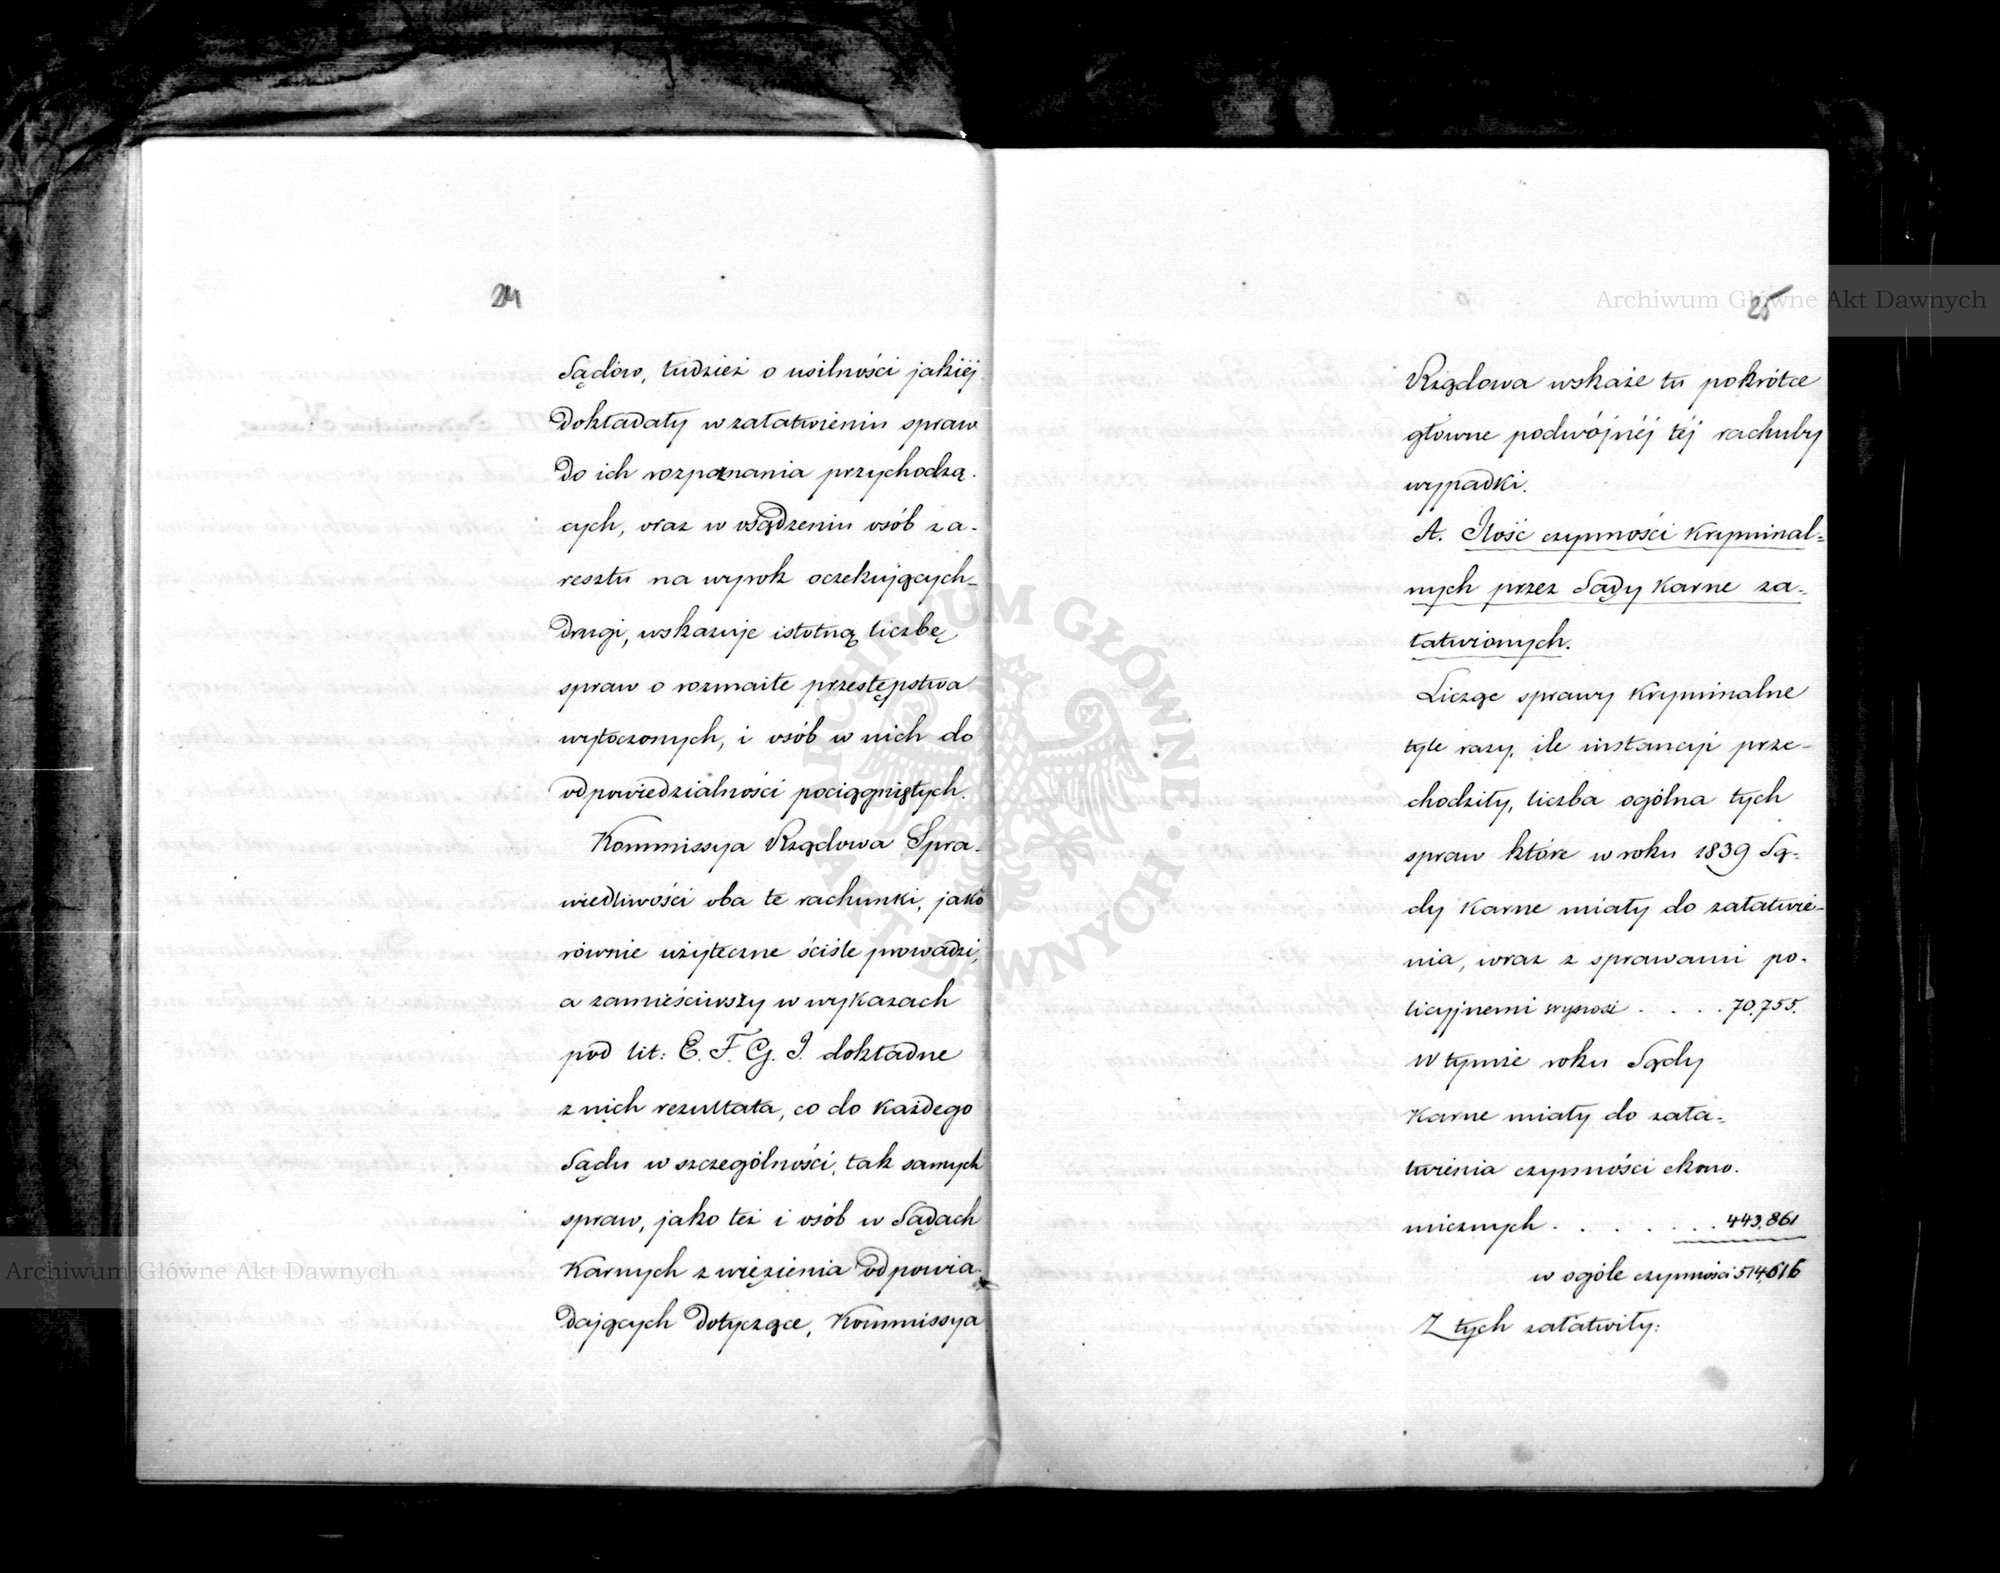 24
Sądów, tudzież o usilności jakiéj
dokładały w załatwieniu spraw
do ich rozpoznania przychodzą-
cych, oraz w osądzeniu osób z a-
resztu na wyrok oczekujących-
drugi, wskazuje istotną liczbę
spraw o rozmaite przestępstwa
wytoczonych, i osób w nich do
odpowiedzialności pociągniętych.
Kommissya Rządowa Spra-
wiedliwości oba te rachunki, jako
równie użyteczne ściśle prowadzi,
a zamieściwszy w wykazach
pod lit: E. F. G. I. dokładne
z nich rezultata, co do każdego
Sądu w szczególności, tak samych
spraw, jako też i osób w Sądach
Karnych z więzienia odpowia-
dających dotyczące, Kommissya
25
Rządowa wskaże tu pokrótce
główne podwójnéj téj rachuby
wypadki.
A. Ilość czynności Kryminal=
nych przez Sądy Karne za-
łatwionych.
Licząc sprawy Kryminalne
tyle razy, ile instancyi prze-
chodziły, liczba ogólna tych
spraw które w roku 1839 Są-
dy Karne miały do załatwie-
nia, wraz z sprawami po-
licyjnemi wynosi . . . . 70,755.
W tymże roku Sądy
Karne miały do zała-
twienia czynności ekono-
micznych . . . . . . . 443,861
w ogóle czynności 514,616
Z tych załatwiły:
Archiwum Główne Akt Dawnych
Archiwum Główne Akt Dawnych
ARCHIWUM GŁÓWNE · AKT DAWNYCH ·